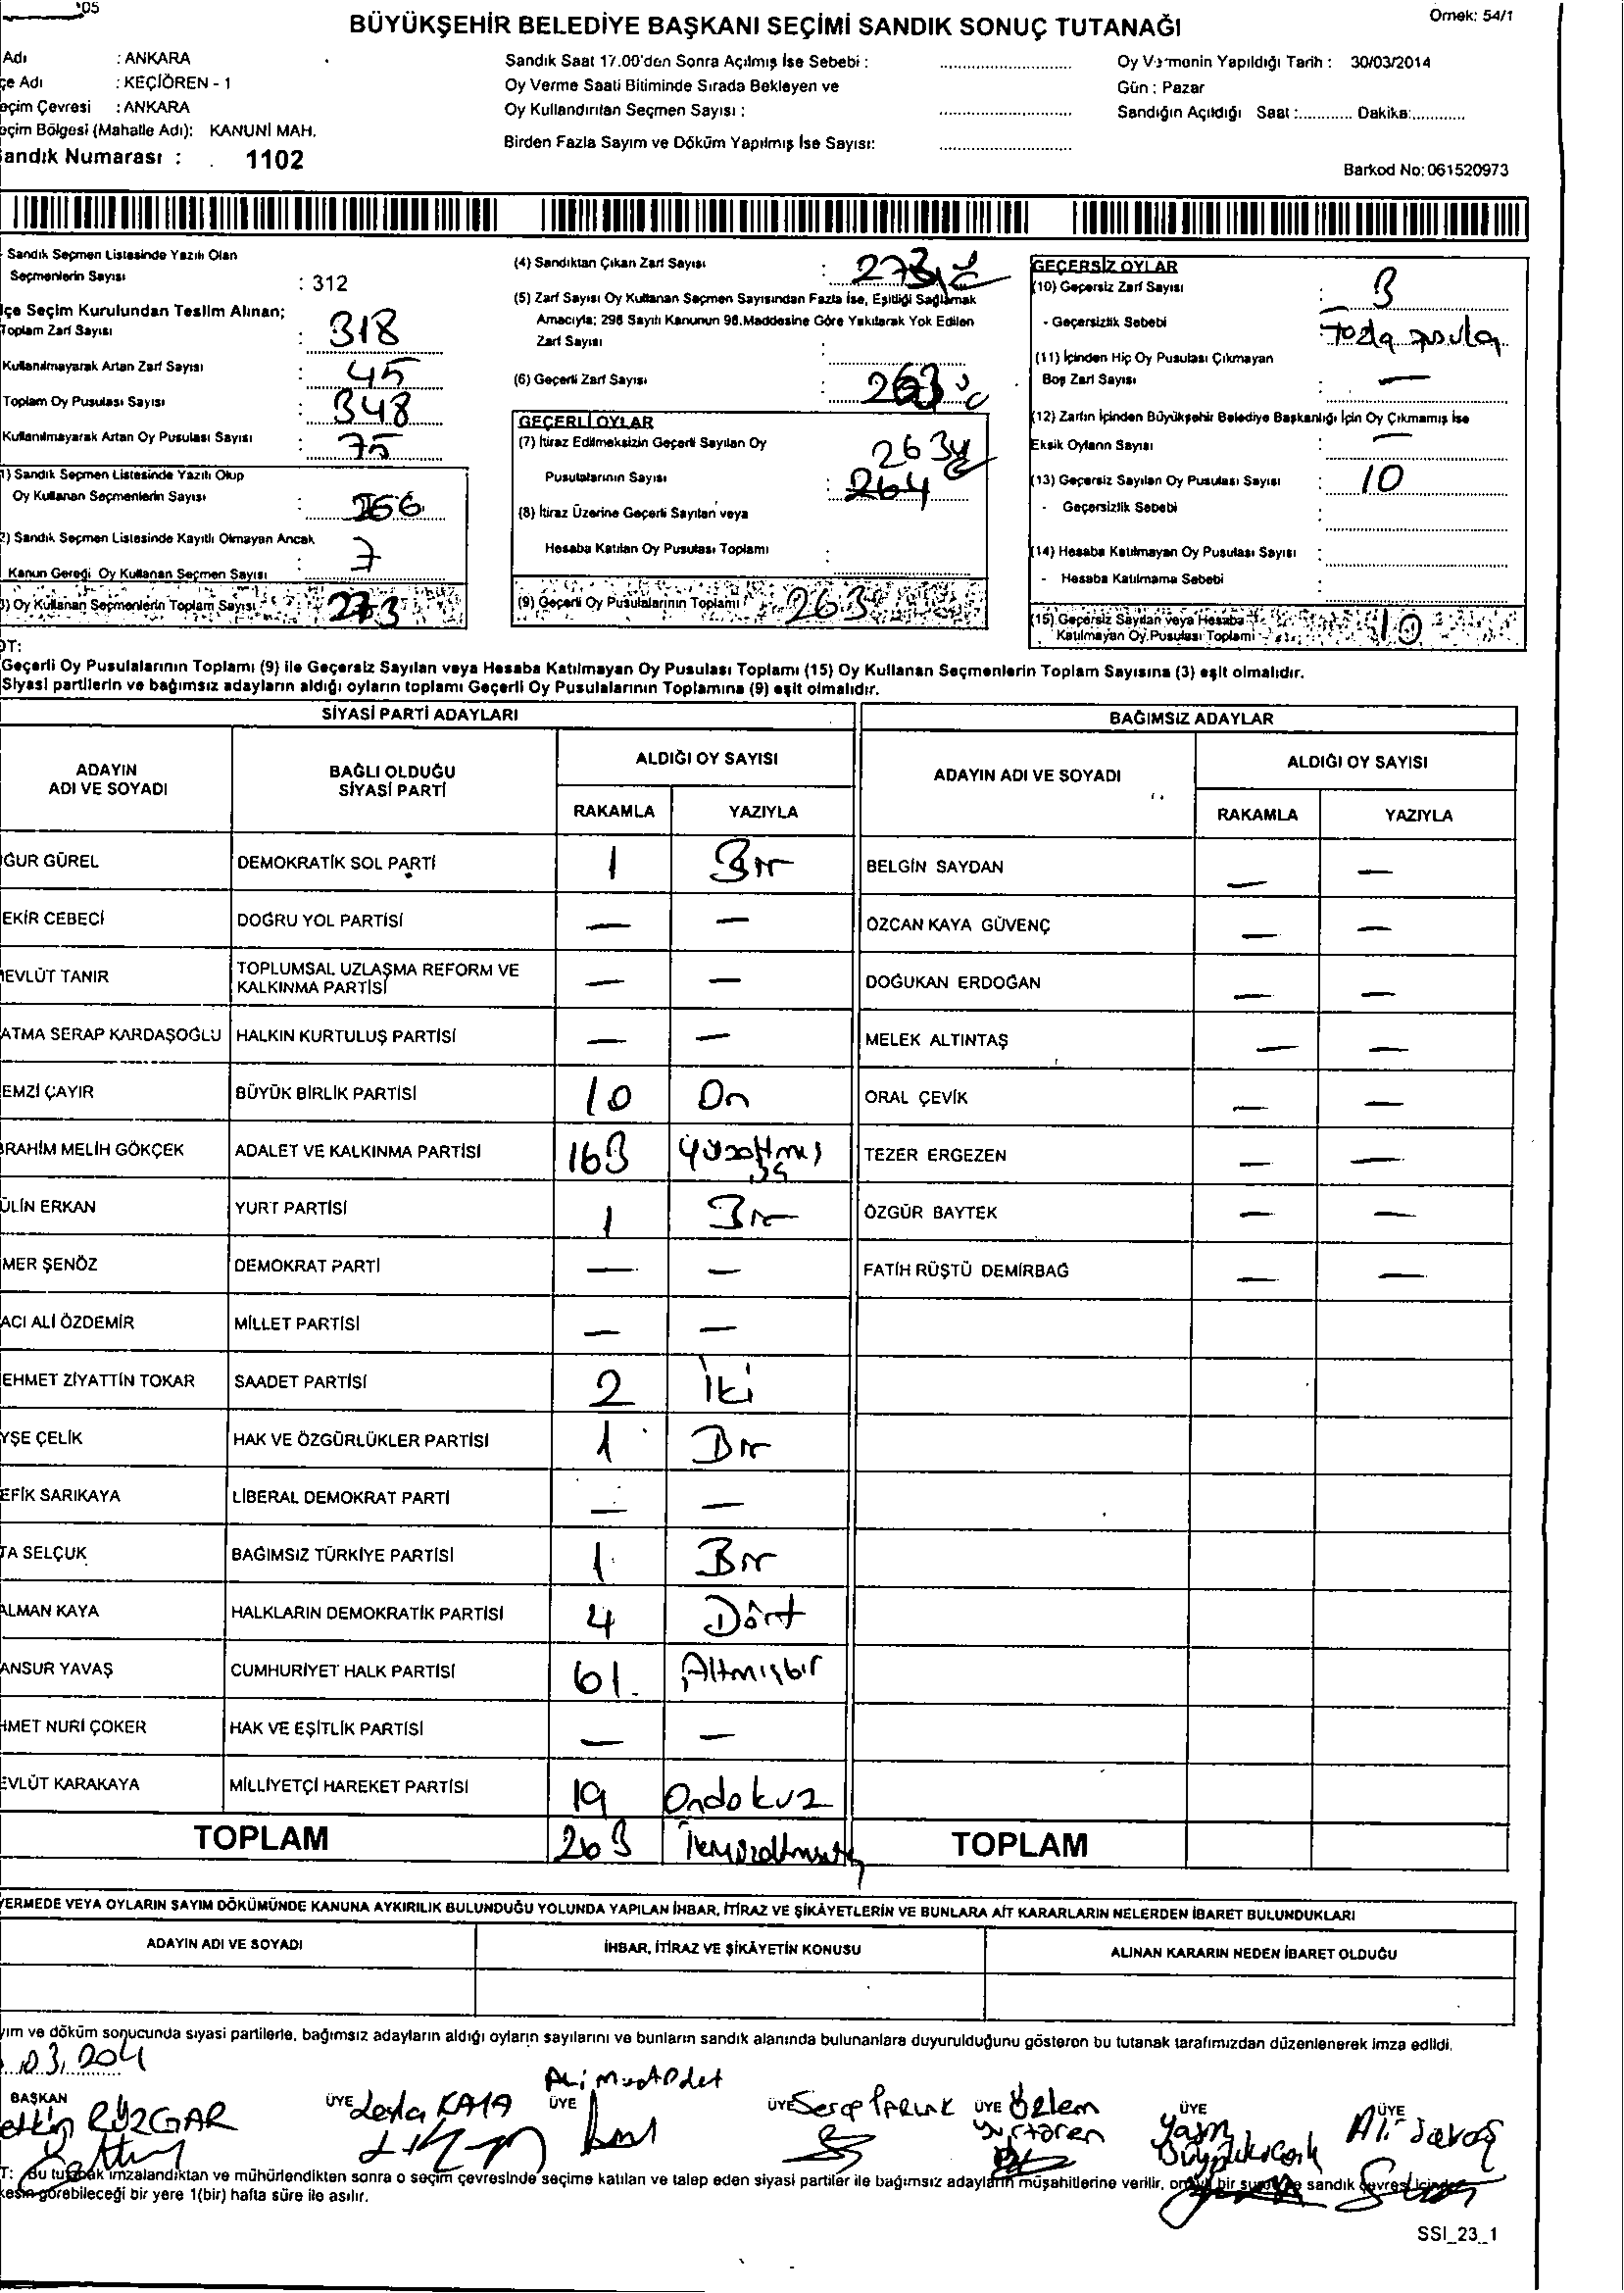 '05
BÜYÜKŞEHİR BELEDİYE BAŞKANI SEÇİMİ SANDIK SONUÇ TUTANAĞI
Örnek: 54/1
Adı : ANKARA
çe Adı : KEÇİÖREN - 1
eçim Çevresi : ANKARA
eçim Bölgesi (Mahalle Adı): KANUNİ MAH.
andık Numarası : 1102
Sandık Saat 17.00'den Sonra Açılmış İse Sebebi :
Oy Verme Saati Bitiminde Sırada Bekleyen ve
Oy Kullandırılan Seçmen Sayısı :
Birden Fazla Sayım ve Döküm Yapılmış İse Sayısı:
Oy Vermenin Yapıldığı Tarih : 30/03/2014
Gün : Pazar
Sandığın Açıldığı Saat :............ Dakika:............
Barkod No: 061520973
Sandık Seçmen Listesinde Yazılı Olan
Seçmenlerin Sayısı : 312
lçe Seçim Kurulundan Teslim Alınan;
Toplam Zarf Sayısı : 318
Kullanılmayarak Artan Zarf Sayısı : 45
Toplam Oy Pusulası Sayısı : 348
Kullanılmayarak Artan Oy Pusulası Sayısı : 75
1) Sandık Seçmen Listesinde Yazılı Olup
Oy Kullanan Seçmenlerin Sayısı : 266
2) Sandık Seçmen Listesinde Kayıtlı Olmayan Ancak
Kanun Gereği Oy Kullanan Seçmen Sayısı : 7
3) Oy Kullanan Seçmenlerin Toplam Sayısı : 273
(4) Sandıktan Çıkan Zarf Sayısı : 273
(5) Zarf Sayısı Oy Kullanan Seçmen Sayısından Fazla İse, Eşitliği Sağlamak
Amacıyla; 298 Sayılı Kanunun 98.Maddesine Göre Yakılarak Yok Edilen
Zarf Sayısı :
(6) Geçerli Zarf Sayısı : 263
GEÇERLİ OYLAR
(7) İtiraz Edilmeksizin Geçerli Sayılan Oy 263
Pusulalarının Sayısı : 264
(8) İtiraz Üzerine Geçerli Sayılan veya
Hesaba Katılan Oy Pusulası Toplamı :
(9) Geçerli Oy Pusulalarının Toplamı : 263
GEÇERSİZ OYLAR
(10) Geçersiz Zarf Sayısı : 3
- Geçersizlik Sebebi : Fazla pusula
(11) İçinden Hiç Oy Pusulası Çıkmayan
Boş Zarf Sayısı : —
(12) Zarfın İçinden Büyükşehir Belediye Başkanlığı İçin Oy Çıkmamış İse
Eksik Oyların Sayısı : —
(13) Geçersiz Sayılan Oy Pusulası Sayısı : 10
- Geçersizlik Sebebi :
(14) Hesaba Katılmayan Oy Pusulası Sayısı :
- Hesaba Katılmama Sebebi :
(15) Geçersiz Sayılan veya Hesaba
Katılmayan Oy Pusulası Toplamı : 10
OT:
Geçerli Oy Pusulalarının Toplamı (9) ile Geçersiz Sayılan veya Hesaba Katılmayan Oy Pusulası Toplamı (15) Oy Kullanan Seçmenlerin Toplam Sayısına (3) eşit olmalıdır.
Siyasi partilerin ve bağımsız adayların aldığı oyların toplamı Geçerli Oy Pusulalarının Toplamına (9) eşit olmalıdır.
SİYASİ PARTİ ADAYLARI
ADAYIN ADI VE SOYADI BAĞLI OLDUĞU SİYASİ PARTİ ALDIĞI OY SAYISI
RAKAMLA YAZIYLA
ĞUR GÜREL DEMOKRATİK SOL PARTİ 1 Bir
EKİR CEBECİ DOĞRU YOL PARTİSİ — —
MEVLÜT TANIR TOPLUMSAL UZLAŞMA REFORM VE KALKINMA PARTİSİ — —
ATMA SERAP KARDAŞOĞLU HALKIN KURTULUŞ PARTİSİ — —
EMZİ ÇAYIR BÜYÜK BİRLİK PARTİSİ 10 On
BRAHİM MELİH GÖKÇEK ADALET VE KALKINMA PARTİSİ 163 Yüzaltmış üç
ÜLİN ERKAN YURT PARTİSİ 1 Bir
MER ŞENÖZ DEMOKRAT PARTİ — —
ACI ALİ ÖZDEMİR MİLLET PARTİSİ — —
EHMET ZİYATTİN TOKAR SAADET PARTİSİ 2 İki
YŞE ÇELİK HAK VE ÖZGÜRLÜKLER PARTİSİ 1 Bir
EFİK SARIKAYA LİBERAL DEMOKRAT PARTİ — —
TA SELÇUK BAĞIMSIZ TÜRKİYE PARTİSİ 1 Bir
ALMAN KAYA HALKLARIN DEMOKRATİK PARTİSİ 4 Dört
ANSUR YAVAŞ CUMHURİYET HALK PARTİSİ 61 Altmışbir
HMET NURİ ÇOKER HAK VE EŞİTLİK PARTİSİ — —
EVLÜT KARAKAYA MİLLİYETÇİ HAREKET PARTİSİ 19 Ondokuz
TOPLAM 263
BAĞIMSIZ ADAYLAR
ADAYIN ADI VE SOYADI ALDIĞI OY SAYISI
RAKAMLA YAZIYLA
BELGİN SAYDAN — —
ÖZCAN KAYA GÜVENÇ — —
DOĞUKAN ERDOĞAN — —
MELEK ALTINTAŞ — —
ORAL ÇEVİK — —
TEZER ERGEZEN — —
ÖZGÜR BAYTEK — —
FATİH RÜŞTÜ DEMİRBAĞ — —
TOPLAM
VERMEDE VEYA OYLARIN SAYIM DÖKÜMÜNDE KANUNA AYKIRILIK BULUNDUĞU YOLUNDA YAPILAN İHBAR, İTİRAZ VE ŞİKÂYETLERİN VE BUNLARA AİT KARARLARIN NELERDEN İBARET BULUNDUKLARI
ADAYIN ADI VE SOYADI İHBAR, İTİRAZ VE ŞİKÂYETİN KONUSU ALINAN KARARIN NEDEN İBARET OLDUĞU
yım ve döküm sonucunda siyasi partilerle, bağımsız adayların aldığı oyların sayılarını ve bunların sandık alanında bulunanlara duyurulduğunu gösteren bu tutanak tarafımızdan düzenlenerek imza edildi.
BAŞKAN ÜYE ÜYE ÜYE ÜYE ÜYE ÜYE
RÜZGAR Leyla KAYA Serap Özlem Yasin Ali Savaş
T: Bu tutanak imzalandıktan ve mühürlendikten sonra o seçim çevresinde seçime katılan ve talep eden siyasi partiler ile bağımsız adayların müşahitlerine verilir, bir sureti sandık çevresi içinde
kesin görebileceği bir yere 1(bir) hafta süre ile asılır.
SSI_23_1